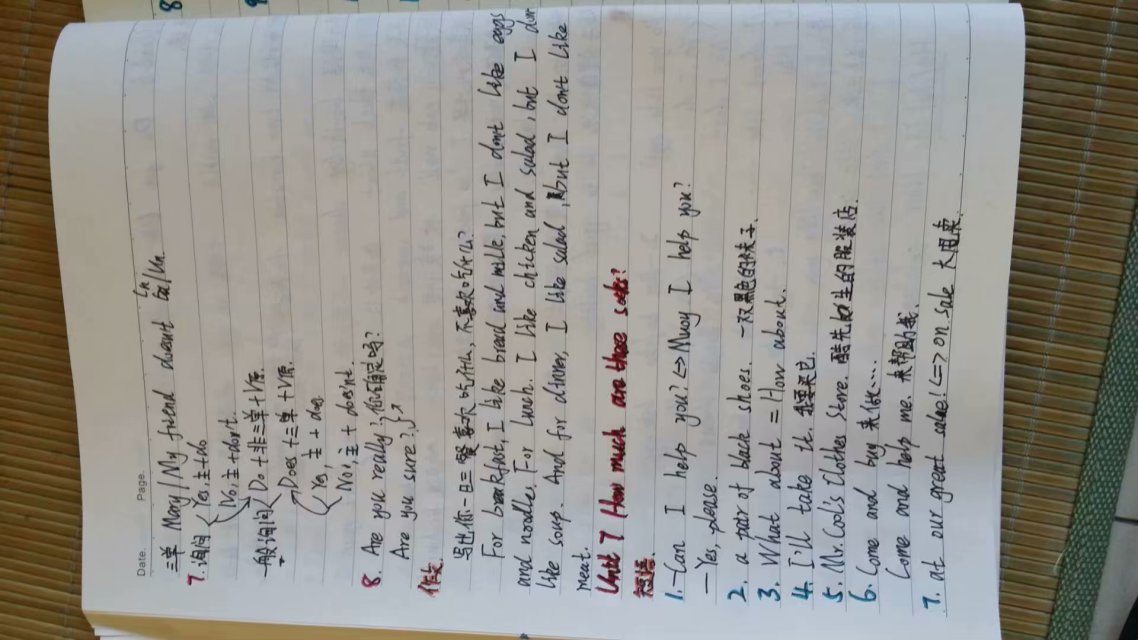 Date. Page.
三单 Mary/My friend doesn't
7. 询问 Yes, 主+do
No, 主+don't.
一般询问 Do+非三单+V原.
Does+三单+V原.
Yes, 主+does
No, 主+doesn't.
8. Are you really? 你确定吗?
Are you sure?
作文
写出你一日三餐喜欢吃什么, 不喜欢吃什么?
For breakfast, I like bread and milk, but I don't like eggs
and noodles. For lunch. I like chicken and salad, but I don
like soup. And for dinner, I like salad, but I don't like
meat.
Unit 7 How much are these socks?
短语.
1. —Can I help you? <=> May I help you?
—Yes, please.
2. a pair of black shoes. 一双黑色的袜子.
3. What about = How about.
4. I'll take it. 我要买它.
5. Mr. Cool's Clothes Store. 酷先生的服装店.
6. Come and buy 来做....
Come and help me. 来帮助我.
7. at our great sale! <=> on sale 大甩卖.